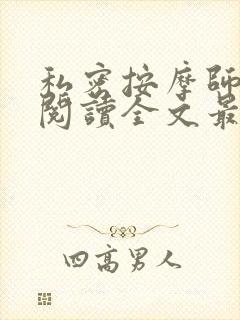 私密按摩師
閱讀全文最
四高男人